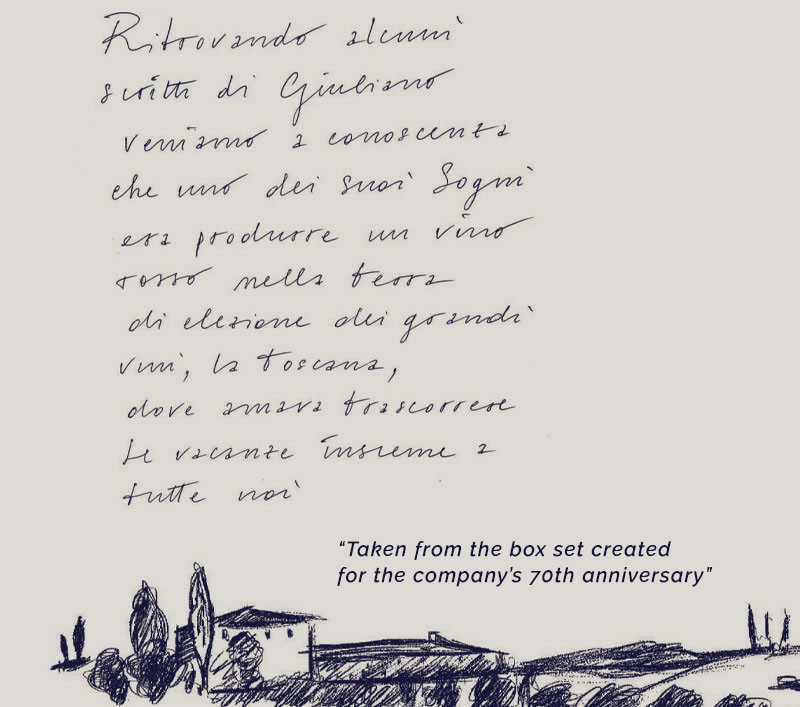 Ritrovando alcuni
scritti di Giuliano
veniamo a conoscenza
che uno dei suoi sogni
era produrre un vino
rosso nella terra
di elezione dei grandi
vini, la Toscana,
dove amava trascorrere
le vacanze insieme a
tutte noi
“Taken from the box set created
for the company’s 70th anniversary”